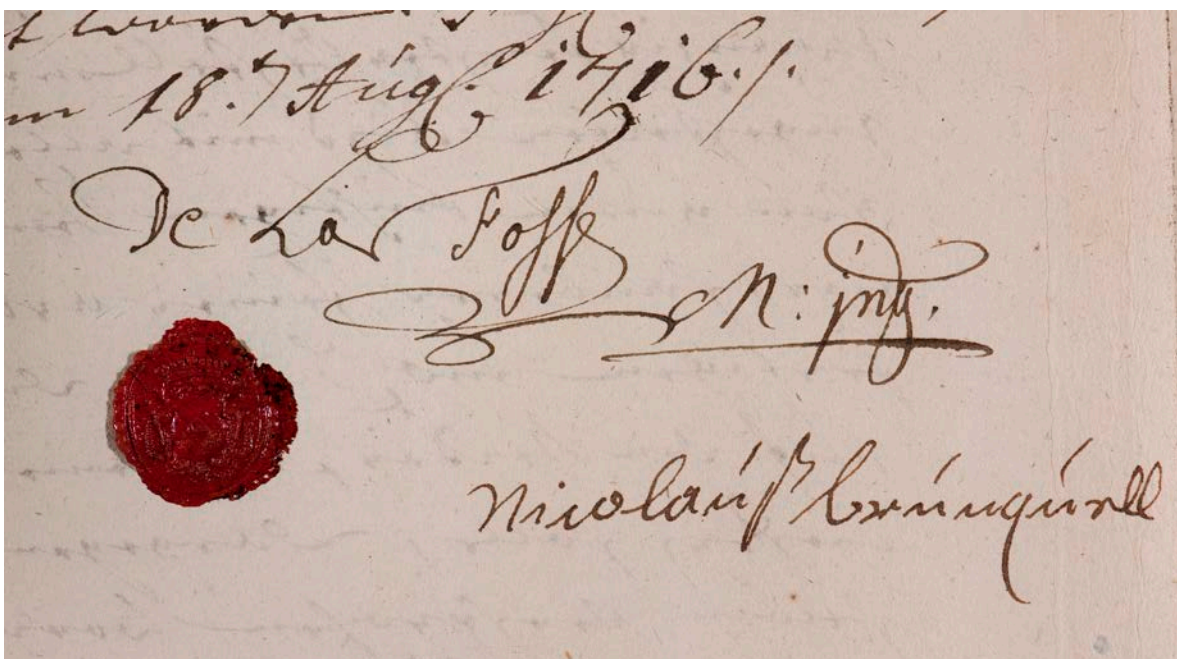 worden
18. Aug. 1716 ./.
De La Fosse
M: jng.
Nicolauß brünquell